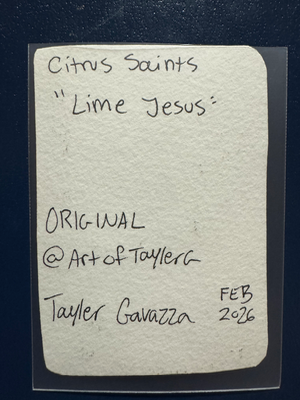 Citrus Saints
"Lime Jesus"
ORIGINAL
@ArtofTaylerG
Tayler Gavazza
FEB
2026